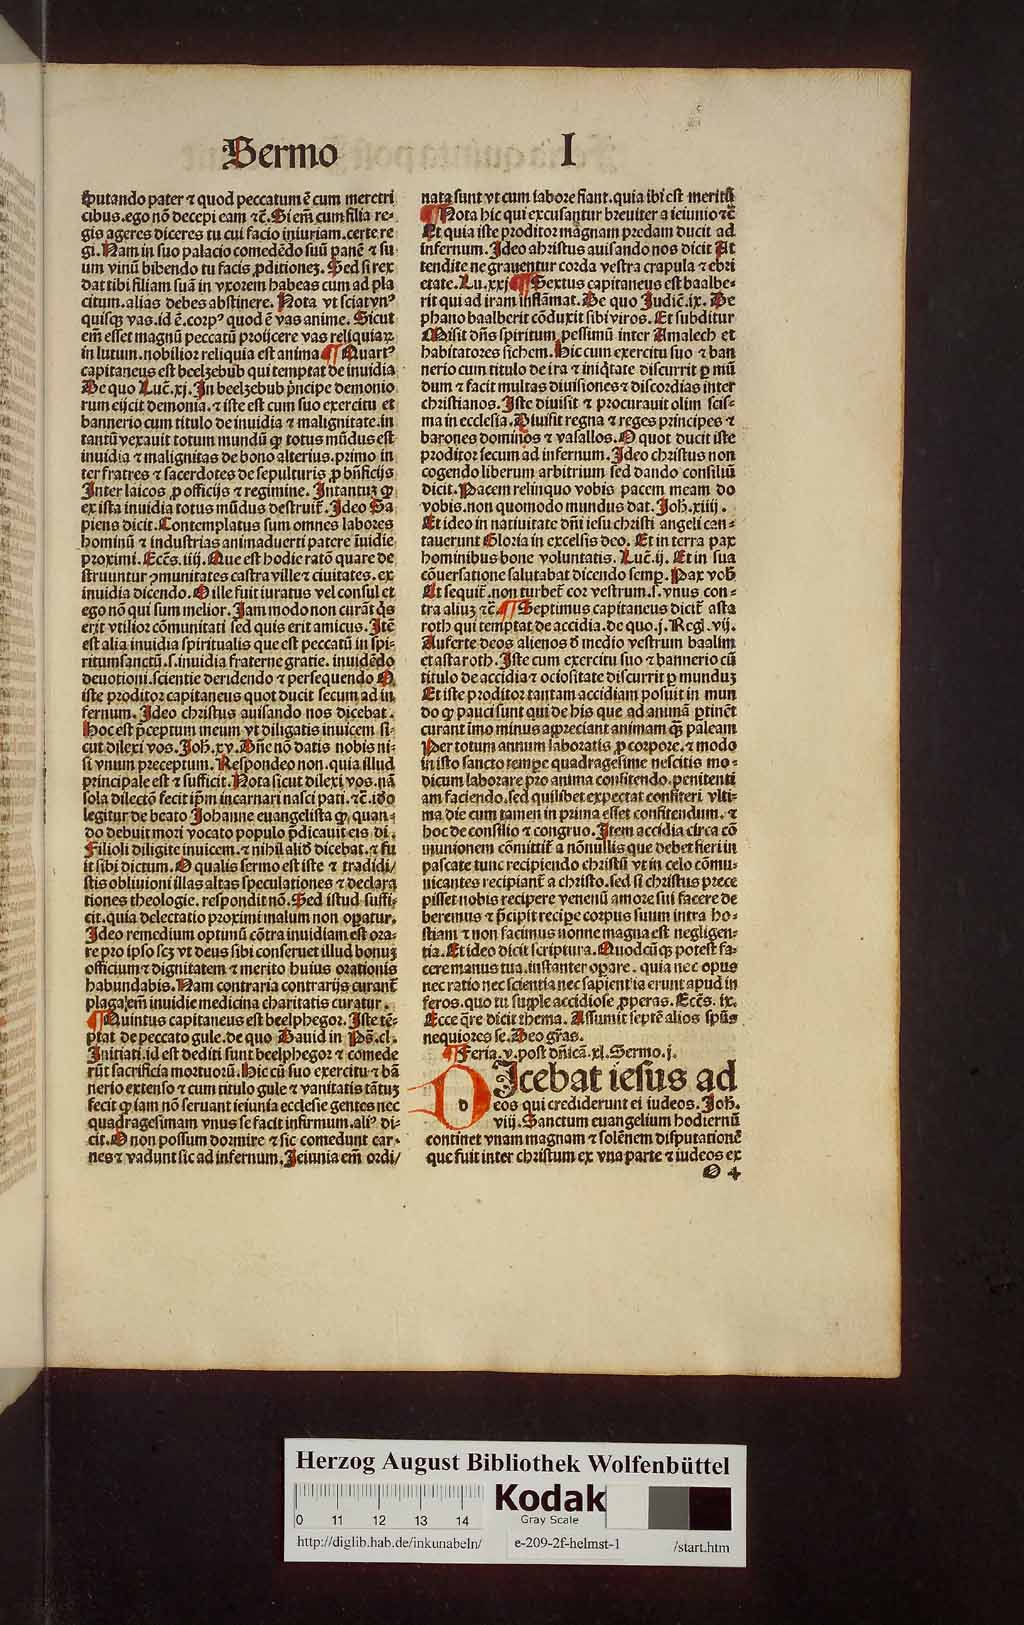 Sermo
I
putando pater ⁊ quod peccatum ē cum meretri
cibus. ego nō decepi eam ⁊c̄. Si em̄ cum filia re-
gis ageres diceres tu cui facio iniuriam. certe re
gi. Nam in suo palacio comedēdo suū panē ⁊ su
um vinū bibendo tu facis ꝓditionez. Sed si rex
dat tibi filiam suā in vxorem habeas cum ad pla
citum. alias debes abstinere. Nota vt sciat vnꝰ
quisqꝫ vas. id ē. corpꝰ quod ē vas anime. Sicut
em̄ esset magnū peccatū proijcere vas reliquiaꝝ
in lutum. nobilior reliquia est anima ¶ Quartꝰ
capitaneus est beelzebub qui temptat de inuidia
De quo Luc̄. xj. In beelzebub pṙncipe demonio
rum eijcit demonia. ⁊ iste est cum suo exercitu et
bannerio cum titulo de inuidia ⁊ malignitate. in
tantū vexauit totum mundū ꝙ totus mūdus est
inuidia ⁊ malignitas de bono alterius. primo in
ter fratres ⁊ sacerdotes de sepulturis ꝓ bn̄ficijs
Inter laicos ꝓ officijs ⁊ regimine. Intantuꝫ ꝙ
ex ista inuidia totus mūdus destruit̄. Ideo Sa
piens dicit. Contemplatus sum omnes labores
hominū ⁊ industrias animaduerti patere īuidie
proximi. Ecc̄s. iiij. Que est hodie ratō quare de
struuntur ꝯmunitates castra ville ⁊ ciuitates. ex
inuidia dicendo. O ille fuit iuratus vel consul et
ego nō qui sum melior. Iam modo non curāt qͥs
erit vtilior cōmunitati sed quis erit amicus. Itē
est alia inuidia spiritualis que est peccatū in spi-
ritumsanctū. s. inuidia fraterne gratie. inuidēdo
deuotioni. scientie deridendo ⁊ persequendo O
iste proditor capitaneus quot ducit secum ad in
fernum. Ideo christus auisando nos dicebat.
Hoc est p̄ceptum meum vt diligatis inuicem si-
cut dilexi vos. Joh̄. xv. Dn̄e nō datis nobis ni-
si vnum preceptum. Respondeo non. quia illud
principale est ⁊ sufficit. Nota sicut dilexi vos. nā
sola dilectō fecit ip̄m incarnari nasci pati. ⁊c̄. ido
legitur de beato Johanne euangelista ꝙ quan-
do debuit mori vocato populo p̄dicauit eis di.
Filioli diligite inuicem. ⁊ nihil aliud dicebat. ⁊ fu
it sibi dictum. O qualis sermo est iste ⁊ tradidi/
stis obliuioni illas altas speculationes ⁊ declara
tiones theologie. respondit nō. Sed istud suffi-
cit. quia delectatio proximi malum non opatur.
Ideo remedium optimū cōtra inuidiam est ora-
re pro ipso scꝫ vt deus sibi conseruet illud bonuꝫ
officium ⁊ dignitatem ⁊ merito huius orationis
habundabis. Nam contraria contrarijs curant̄
plaga em̄ inuidie medicina charitatis curatur.
¶ Quintus capitaneus est beelphegor. Iste tē-
ptat de peccato gule. de quo Dauid in Ps̄. cl.
Initiati. id est dediti sunt beelphegor ⁊ comede
rūt sacrificia mortuorū. Hic cū suo exercitu ⁊ bā
nerio extenso ⁊ cum titulo gule ⁊ vanitatis tātuꝫ
fecit ꝙ iam nō seruant ieiunia ecclesie gentes nec
quadragesimam vnus se facit infirmum. aliꝰ di-
cit. O non possum dormire ⁊ sic comedunt car-
nes ⁊ vadunt sic ad infernum. Ieiunia em̄ ordi/
nata sunt vt cum labore fiant. quia ibi est meritū
¶ Nota hic qui excusantur breuiter a ieiunio ⁊c̄
Et quia iste proditor magnam predam ducit ad
infernum. Ideo christus auisando nos dicit At
tendite ne grauentur corda vestra crapula ⁊ ebri
etate. Lu. xxj ¶ Sextus capitaneus est baalbe-
rit qui ad iram inflāmat. De quo Judic̄. ix. De
phano baalberit cōduxit sibi viros. Et subditur
Misit dn̄s spiritum pessimū inter Amalech et
habitatores sichem. Hic cum exercitu suo ⁊ ban
nerio cum titulo de ira ⁊ iniqͥtate discurrit ꝑ mū
dum ⁊ facit multas diuisiones ⁊ discordias inter
christianos. Iste diuisit ⁊ procurauit olim scis-
ma in ecclesia. Diuisit regna ⁊ reges principes ⁊
barones dominos ⁊ vasallos. O quot ducit iste
proditor secum ad infernum. Ideo christus non
cogendo liberum arbitrium sed dando consiliū
dicit. Pacem relinquo vobis pacem meam do
vobis. non quomodo mundus dat. Joh̄. xiiij.
Et ideo in natiuitate dn̄i iesu christi angeli can-
tauerunt Gloria in excelsis deo. Et in terra pax
hominibus bone voluntatis. Luc̄. ij. Et in sua
cōuersatione salutabat dicendo semꝑ. Pax vob̄
Et sequit̄. non turbet̄ cor vestrum. s. vnus con-
tra aliuꝫ ⁊c̄. ¶ Septimus capitaneus dicit̄ asta
roth qui temptat de accidia. de quo. j. Reg. vij.
Auferte deos alienos d̄ medio vestrum baalim
et astaroth. Iste cum exercitu suo ⁊ bannerio cū
titulo de accidia ⁊ ociositate discurrit ꝑ munduꝫ
Et iste proditor tantam accidiam posuit in mun
do ꝙ pauci sunt qui de his que ad animā ꝑtinēt
curant īmo minus appreciant animam qꝫ paleam
Per totum annum laboratis ꝓ corpore. ⁊ modo
in isto sancto tempe quadragesime nescitis mo-
dicum laborare pro anima confitendo. penitenti
am faciendo. sed quilibet expectat confiteri vlti-
ma die cum tamen in prima esset confitendum. ⁊
hoc de consilio ⁊ congruo. Item accidia circa cō
munionem cōmittit̄ a nōnullis que debet fieri in
pascate tunc recipiendo christū vt in celo cōmu-
nicantes recipiant̄ a christo. sed si christus prece
pisset nobis recipere venenū amore sui facere de
beremus ⁊ p̄cipit recipe corpus suum intra ho-
stiam ⁊ non facimus nonne magna est negligen-
tia. Et ideo dicit scriptura. Quodcūqꝫ potest fa-
cere manus tua. instanter opare. quia nec opus
nec ratio nec scientia nec sapientia erunt apud in
feros. quo tu supple accidiose ꝓperas. Ecc̄s. ix.
Ecce qͣre dicit thema. Assumit septē alios spūs
nequiores se. Deo gr̄as.
¶ Feria. v. post dn̄icā. xl. Sermo. j.
DIcebat iesus ad
eos qui crediderunt ei iudeos. Joh̄.
viij. Sanctum euangelium hodiernū
continet vnam magnam ⁊ solēnem disputationē
que fuit inter christum ex vna parte ⁊ iudeos ex
O 4
Herzog August Bibliothek Wolfenbüttel
0 11 12 13 14
Kodak
Gray Scale
http://diglib.hab.de/inkunabeln/
e-209-2f-helmst-1
/start.htm